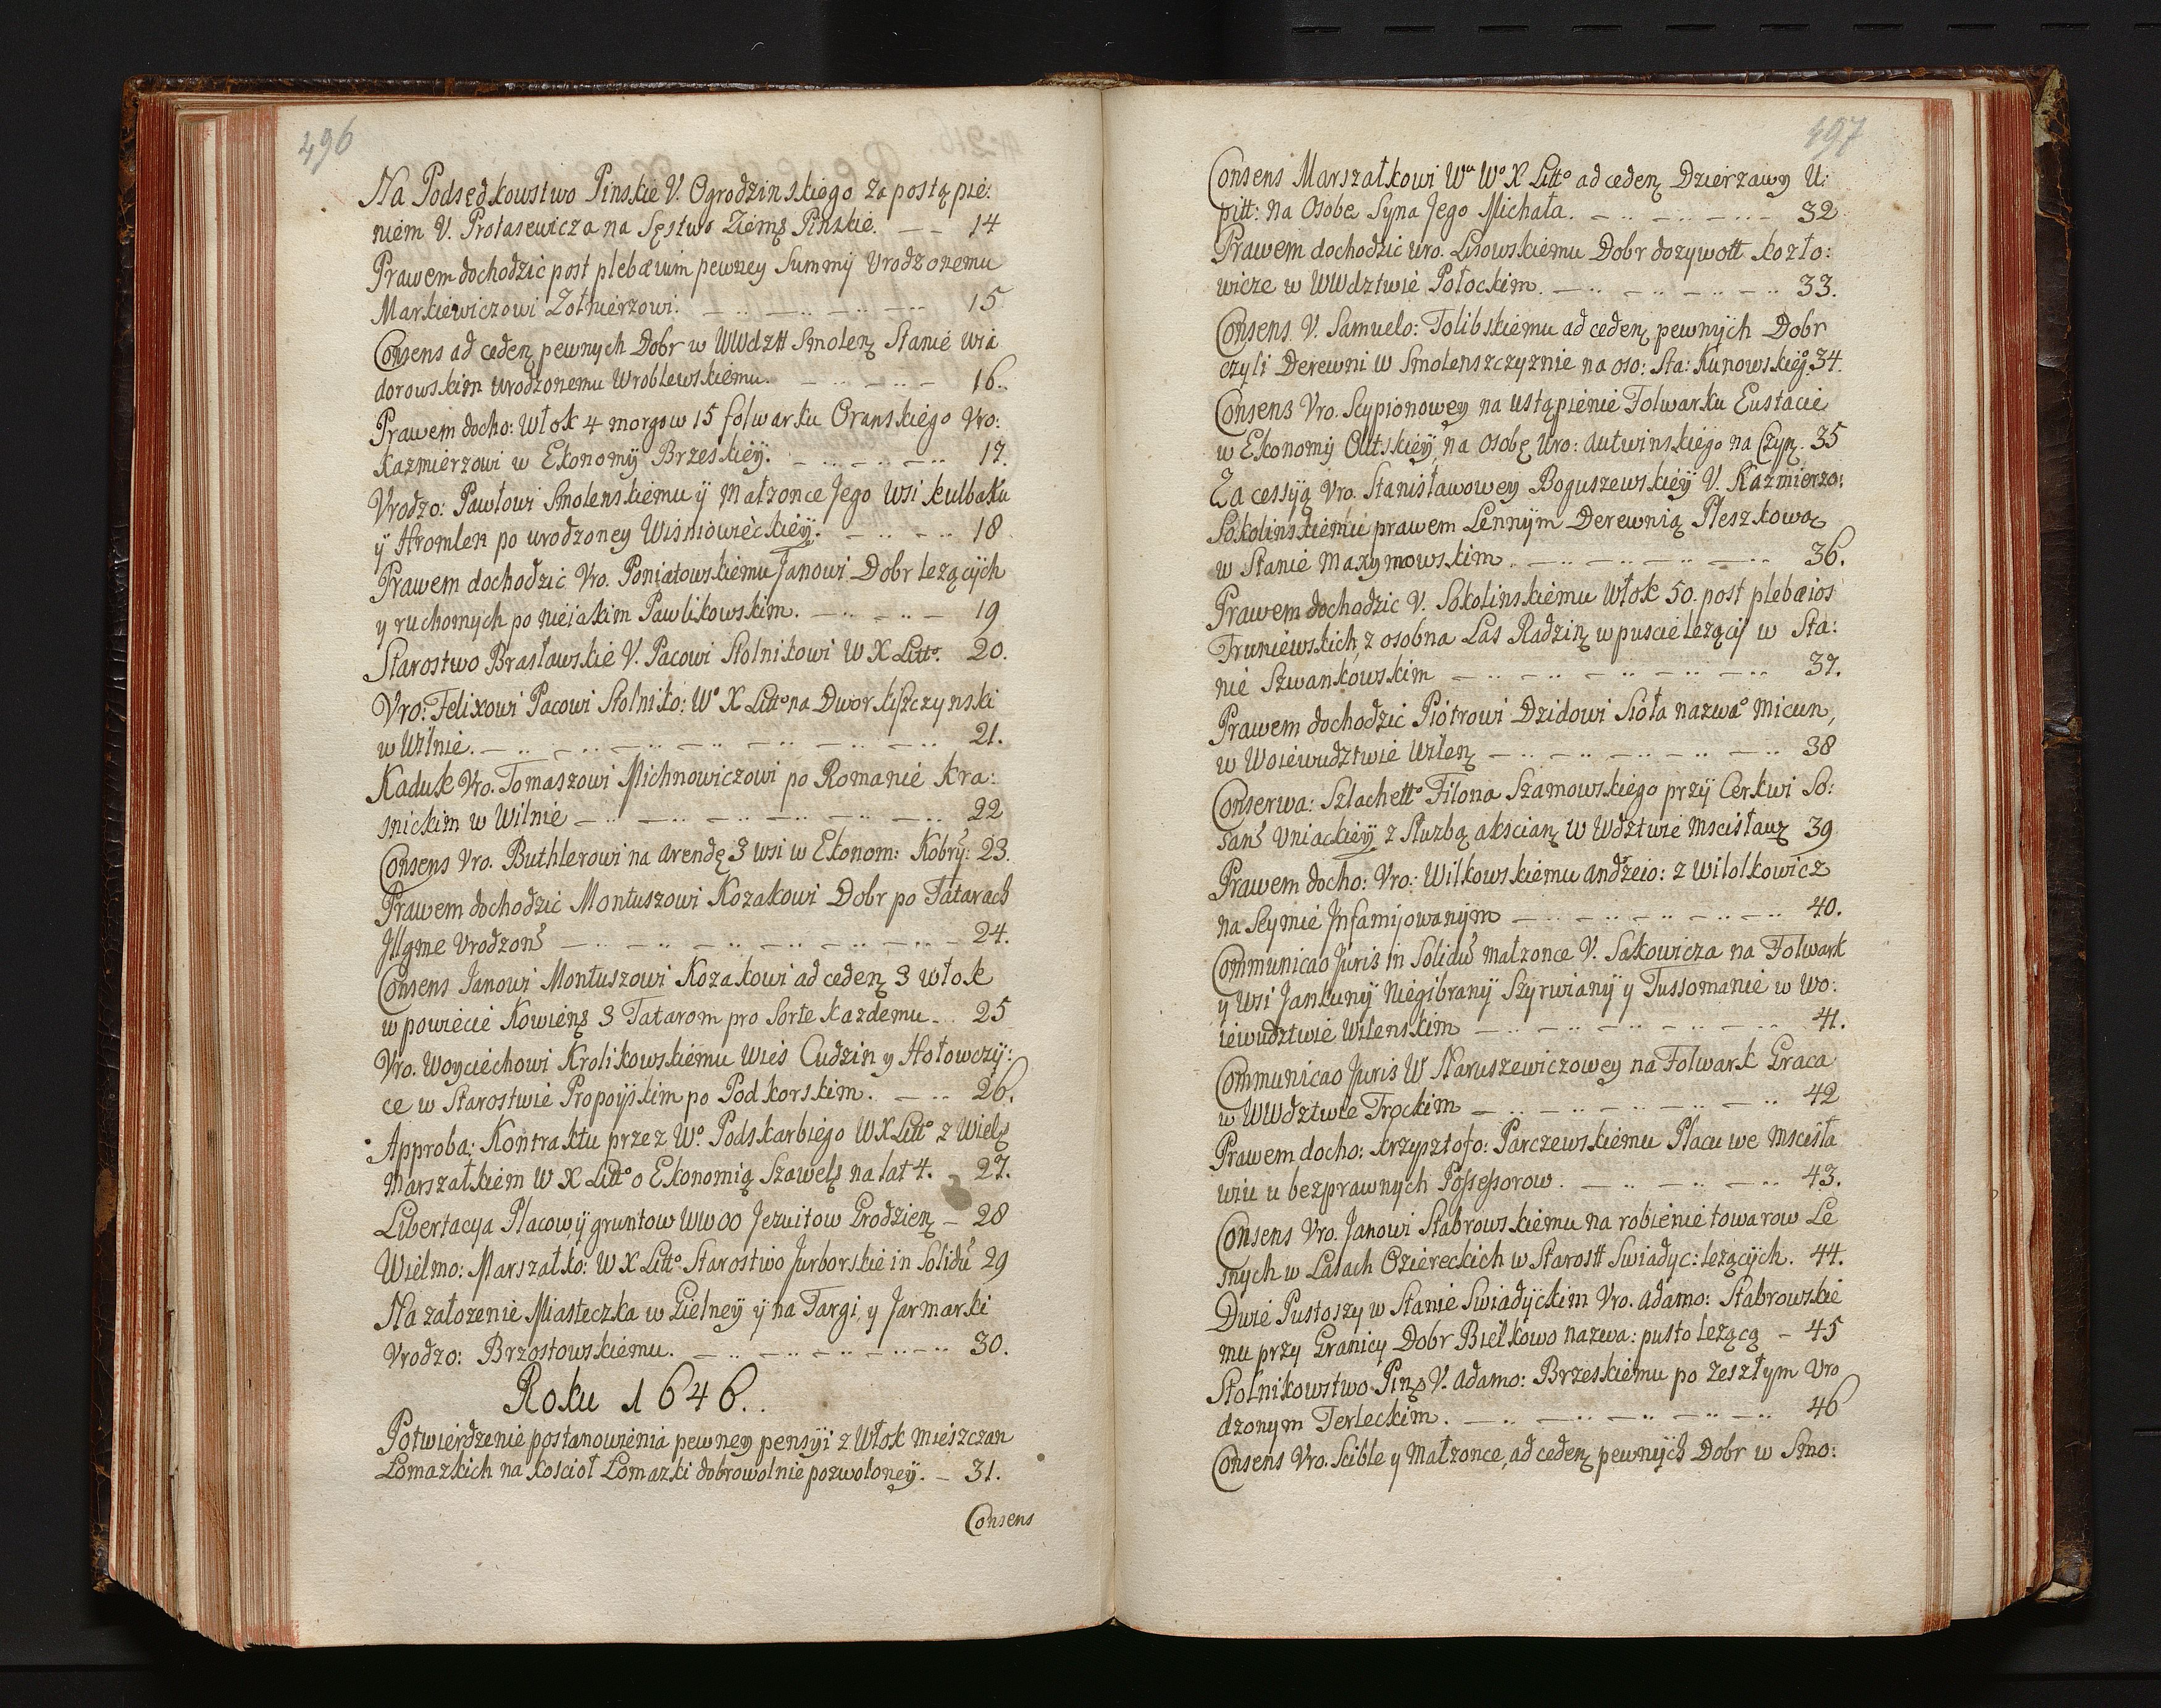 496
Na Podsędkowstwo Pinskie V. Ogrodzinskiego za postąpie:
niem V. Protasewicza na Sęstwo Ziemȝ Pinskie. — — 14
Prawem dochodzić post plebæum pewney Summy Vrodzonemu
Markiewiczowi Zołnierzowi. — .. — .. — .. — 15
Consens ad cedenȝ pewnych Dobr w WWdztt Smolenȝ Stanie Wia
dorowskim urodzonemu Wroblewskiemu. — .. — .. — 16.
Prawem docho: Włok 4 morgow 15 folwarku Oranskiego Vro:
Kazmierzowi w Ekonomÿ Brzeskieÿ. — .. — .. — .. 17.
Vrodzo: Pawłowi Smolenskiemu ÿ Małzonce Jego Wsi Kulbaku
ÿ Hromlen po urodzoney Wisniowieckieÿ. — .. — .. 18
Prawem dochodzić Vro. Poniatowskiemu Janowi Dobr lezącÿch
y ruchomych po nieiakim Pawlikowskim. — .. — .. — 19
Starostwo Brasławskie V. Pacowi Stolnikowi W X Litto. 20.
Vro: Felixowi Pacowi Stolniko: Wo X Litto na Dwor Kiszczynski
w Wilnie. — .. — .. — .. — .. — .. — .. — .. 21.
Kaduk Vro. Tomaszowi Michnowiczowi po Romanie Kra:
snickim w Wilnie — .. — .. — .. — .. — .. — .. 22
Consens Vro. Buthlerowi na arendę 3 wsi w Ekonom: Kobrÿ: 23.
Prawem dochodzić Montuszowi Kozakowi Dobr po Tatarach
Illgme Vrodzons — .. — .. — .. — .. — .. — .. — 24.
Consens Janowi Montuszowi Kozakowi ad cedenȝ 3 włok
w powiecie Kowienȝ 3 Tatarom pro Sorte kazdemu — .. 25
Vro. Woyciechowi Krolikowskiemu Wies Cudzin y Hołowczÿ:
ce w Starostwie Propoÿskim po Podkorskim. — .. 26.
Approba: Kontraktu przez Wo. Podskarbiego W X Litto z Wielȝ
Marszałkiem W X Litto o Ekonomią Szawelȝ na lat 4. 27.
Libertacya Placow ÿ gruntow WW OO Jezuitow Grodzienȝ — 28
Wielmo: Marszałko: W X Litto Starostwo Jurborskie in Solidũ 29
Na załozenie Miasteczka w Zielneÿ ÿ na Targi, y Jarmarki
Vrodzo: Brzostowskiemu. — .. — .. — .. — .. 30.
Roku 1646..
Potwierdzenie postanowienia pewney pensÿi z Włok mieszczan
Lomazkich na Koscioł Lomazki dobrowolnie pozwoloneÿ. — 31.
Consens
497
Consens Marszałkowi Wu Wo X Litto ad cedenȝ Dzierzawy U:
pitt: na Osobe Syna Jego Michała. — .. — .. — .. — 32
Prawem dochodzic Uro. Lisowskiemu Dobr dozywott Kozło:
wicze w WWdztwie Połockim. — .. — .. — .. — .. 33.
Consens V. Samuelo: Tolibskiemu ad cedenȝ pewnÿch Dobr
czyli Derewni w Smolenszczyznie na oso: Sta: Kunowskiego. 34.
Consens Vro. Scypionowey na ustąpienie Folwarku Eustacie
w Ekonomÿ Olitskieÿ na osobę Uro: Autwinskiego na Czynȝ. 35
Za cessÿą Vro. Stanisławowey Boguszewskieÿ V. Kazmierzo:
Sokolinskiemu prawem Lennÿm Derewnią Pleszkową
w Stanie Maxymowskim. — .. — .. — .. — .. 36.
Prawem dochodzic V. Sokolinskiemu Włok 50. post plebæios
Truniewskich, z osobna Las Radzinȝ w puscie lezącÿ w Sta:
nie Szwankowskim — .. — .. — .. — .. — .. 37.
Prawem dochodzić Piotrowi Dzidowi Sioła nazwao Micun,
w Woiewudztwie Wilenȝ — .. — .. — .. — .. — .. 38
Conserwa: Szlachetto Filona Szamowskiego przÿ Cerkwi So:
Uniackieÿ z Służbą w Wdztwie Mscisławȝ 39
Prawem docho: Vro: Wilkowskiemu Andzeio: z Witolkowicz
na Seymie Infamÿowanÿm — .. — .. — .. — .. 40.
Communicao Juris in Solidũ małzonce V. Sakowicza na Folwark
y Wsi Jankunÿ Niegibranÿ Szyrwianÿ y Tussomanie w Wo:
iewudztwie Wilenskim — .. — .. — .. — .. — .. 41.
Communicao Juris W Naruszewiczowey na Folwark Graca
w WWdztwie Trockim — .. — .. — .. — .. — .. 42
Prawem docho: Krzysztofo: Parczewskiemu Placu we Mscisła
wiu u bezprawnych Possessorow. — .. — .. — .. 43.
Consens Vro. Janowi Stabrowskiemu na robienie towarow Le
snych w Lasach Oziereckich w Starostt Swiadyc: lezącÿch. 44.
Dwie Pustoszy w Stanie Swiadÿckim Vro. Adamo: Stabrowskie
mu przy Granicy Dobr Bielkowo nazwa: pusto lezącą — 45
Stolnikowstwo Pinȝ V. Adamo: Brzeskiemu po Zeszłym Uro
dzonym Terleckim. — .. — .. — .. — .. — .. 46
Consens Vro. Scible y Małzonce, ad cedenȝ pewnÿch Dobr w Smo: